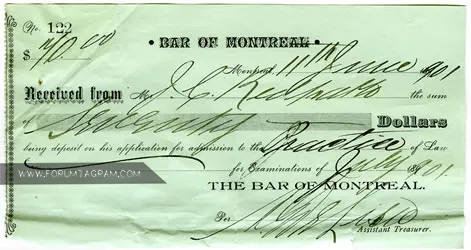 No. 122
$ 70.00
• BAR OF MONTREAL •
Montreal, 11th June 1901
Received from Mr. J. C. the sum
of Seventy Dollars
being deposit on his application for admission to the Practice of Law
for Examinations of July 1901.
WWW.FORUMTAGRAM.COM
THE BAR OF MONTREAL.
Per
Assistant Treasurer.